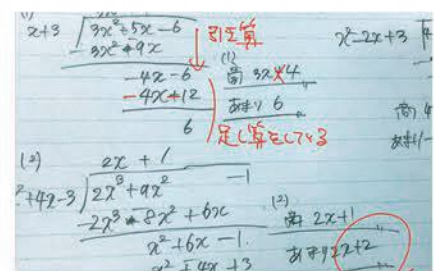 (1)
x+3 ) 3x²+5x-6
- 3x²+9x
-4x-6
-4x+12
6
引き算
足し算をしている
(1)
商 3x-4
あまり 6
x²-2x+3
商 4
あまり
(2)
2x + 1
x²+4x-3 ) 2x³+9x² -1
2x³+8x²+6x
x²+6x-1
x²+4x+3
(2)
商 2x+1
あまり 2x+2